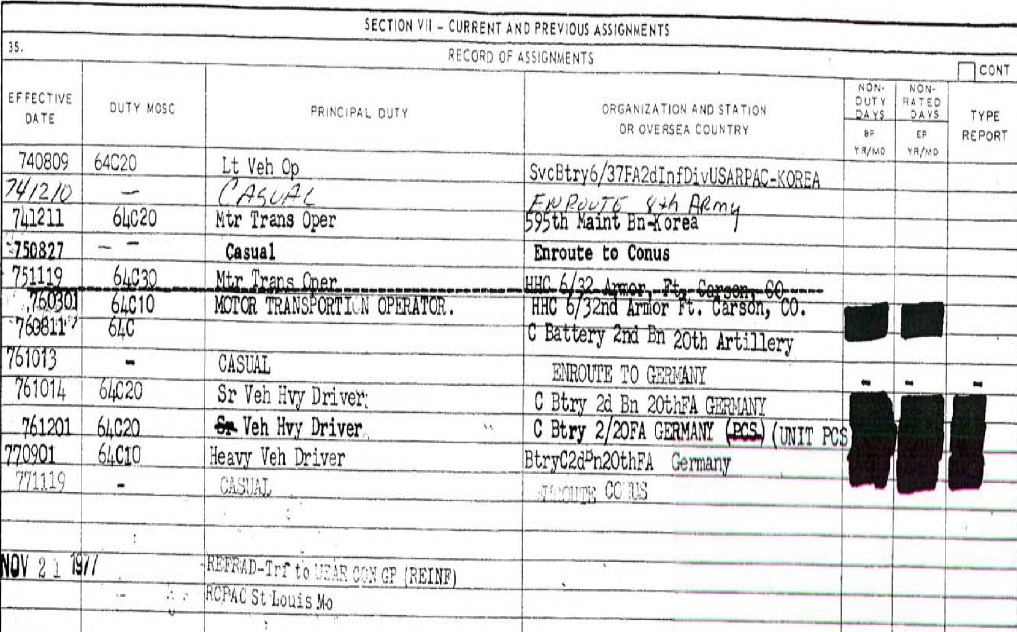 SECTION VII - CURRENT AND PREVIOUS ASSIGNMENTS
35. RECORD OF ASSIGNMENTS CONT
EFFECTIVE DATE DUTY MOSC PRINCIPAL DUTY ORGANIZATION AND STATION OR OVERSEA COUNTRY NON-DUTY DAYS NON-RATED DAYS TYPE REPORT
BP YR/MO EP YR/MO
740809 64C20 Lt Veh Op SvcBtry6/37FA2dInfDivUSARPAC-KOREA
741210 - CASUAL ENROUTE 8th ARMY
741211 64C20 Mtr Trans Oper 595th Maint Bn-Korea
750827 - - Casual Enroute to Conus
751119 64C30 Mtr Trans Oper HHC 6/32 Armor, Ft. Carson, CO
760301 64C10 MOTOR TRANSPORTION OPERATOR. HHC 6/32nd Armor Ft. Carson, CO.
760811 64C C Battery 2nd Bn 20th Artillery
761013 - CASUAL ENROUTE TO GERMANY - - -
761014 64C20 Sr Veh Hvy Driver C Btry 2d Bn 20thFA GERMANY
761201 64C20 Sr Veh Hvy Driver C Btry 2/20FA GERMANY (PCS) (UNIT PCS
770901 64C10 Heavy Veh Driver BtryC2dBn20thFA Germany
771119 - CASUAL ENROUTE CONUS
NOV 21 1977 REFRAD-Trf to USAR CON GP (REINF)
RCPAC St Louis Mo